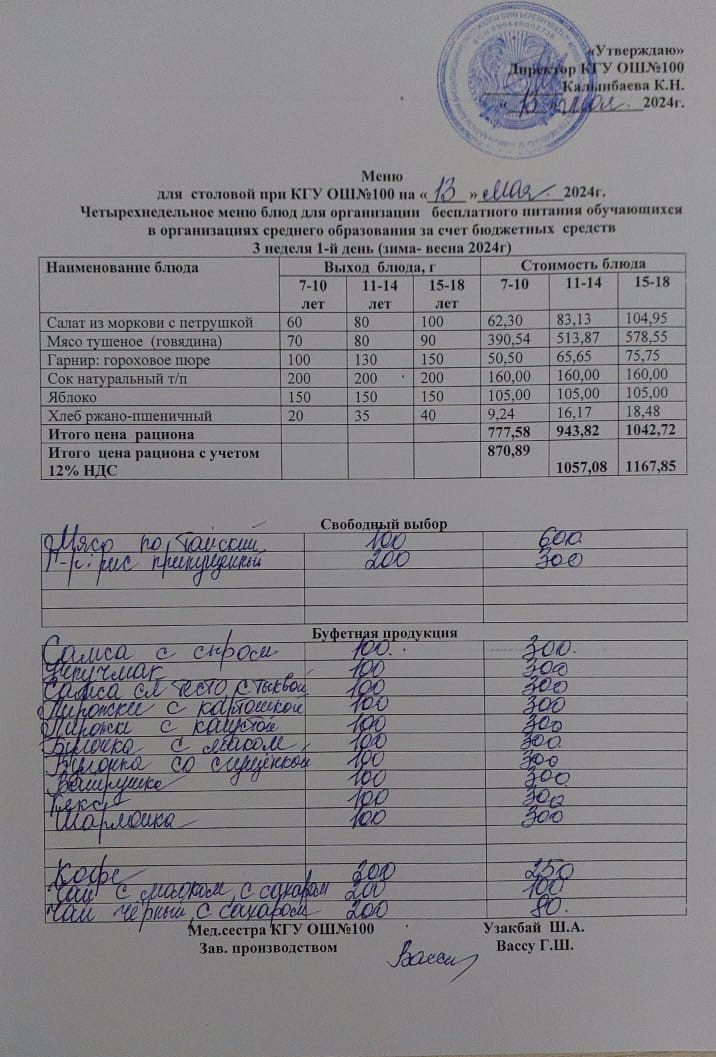 «Утверждаю»
Директор КГУ ОШ№100
Калынбаева К.Н.
« 13 » мая 2024г.
Меню
для столовой при КГУ ОШ№100 на « 13 » мая 2024г.
Четырехнедельное меню блюд для организации бесплатного питания обучающихся
в организациях среднего образования за счет бюджетных средств
3 неделя 1-й день (зима- весна 2024г)
Наименование блюда Выход блюда, г Стоимость блюда
7-10 лет 11-14 лет 15-18 лет 7-10 11-14 15-18
Салат из моркови с петрушкой 60 80 100 62,30 83,13 104,95
Мясо тушеное (говядина) 70 80 90 390,54 513,87 578,55
Гарнир: гороховое пюре 100 130 150 50,50 65,65 75,75
Сок натуральный т/п 200 200 200 160,00 160,00 160,00
Яблоко 150 150 150 105,00 105,00 105,00
Хлеб ржано-пшеничный 20 35 40 9,24 16,17 18,48
Итого цена рациона 777,58 943,82 1042,72
Итого цена рациона с учетом 870,89
12% НДС 1057,08 1167,85
Свободный выбор
Мясо по тайский 100 600
Г-р: рис припущенный 200 300
Буфетная продукция
Самса с сыром 100. 300.
Учпучмак 100 300
Самса сл тесто с тыквой 100 300
Пирожки с картошкой 100 300
Пирожки с капустой 100 300
Булочка с мясом 100 300
Булочка со сгущенкой 100 300
Ватрушка 100 300
Кекс 100 300
Шарлотка 100 300
Кофе 200 250
Чай с молоком, с сахаром 200 100
Чай чёрный, с сахаром 200 80.
Мед.сестра КГУ ОШ№100 Узакбай Ш.А.
Зав. производством Вассу Г.Ш.